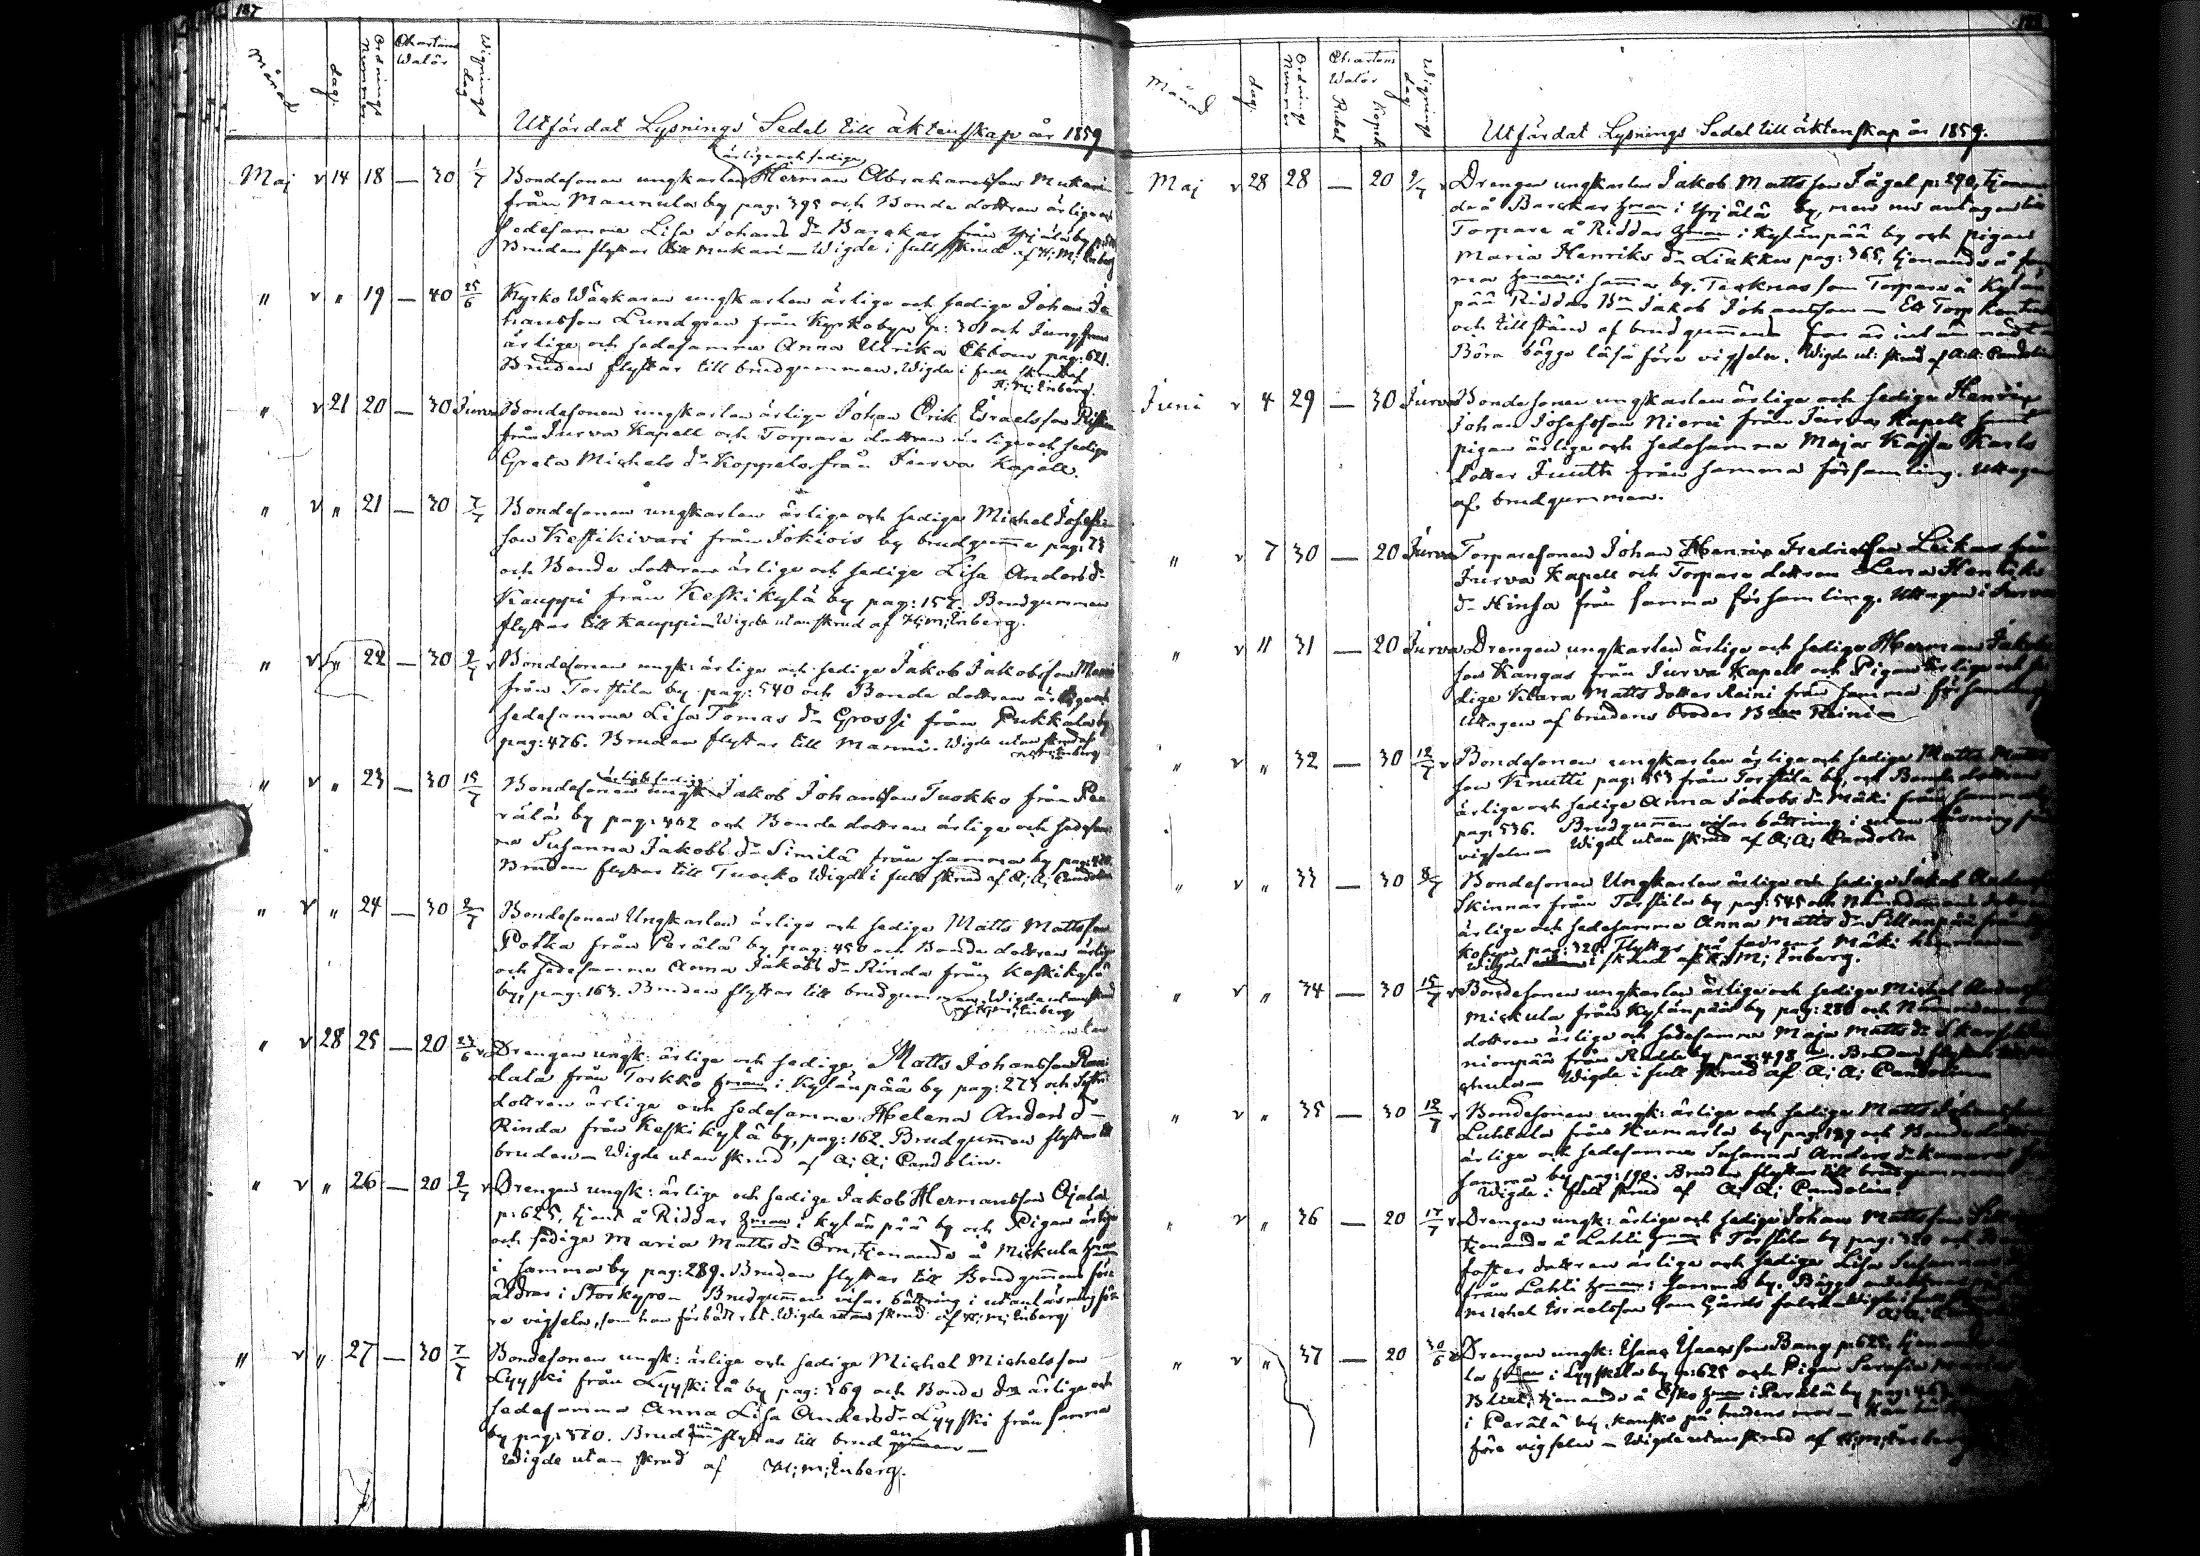 187
Månad
dag.
Ordnings Nummer
Chartans Walör
Wignings dag
Utfärdat Lysnings Sedel till äktenskap år 1859
Maj 14 18 — 30 1/7 Bondesonen ungkarlen ärlige och sedige Herman Abrahamsson Mukari
från Mannula by pag: 395 och Bonde dottren ärliga och
sedesamma Lisa Johans dr Barckar från Yrjälä by
Bruden flyttar till Mukari — Wigde i full skrud af H: M: Enberg
" " 19 — 40 25/6 Kyrko Wäktaren ungkarlen ärlige och sedige Johan Jo
hansson Lundgren från Kyrkobyn p: 301 och Jungfrun
ärliga och sedesamma Anna Ulrika Ekbom pag: 621.
Bruden flyttar till brudgummen. Wigde i full skrud af
H: M: Enberg.
" 21 20 — 30 Jurva Bondesonen ungkarlen ärlige Johan Erik Israelsson
från Jurva Kapell och Torpare dottren ärliga och sediga
Greta Michels dr Koppelo från Jurva Kapell.
" " 21 — 30 7/7 Bondesonen ungkarlen ärlige och sedige Michel Josefs
son Keskikivari från Jokiois by brudgumme pag: 73
och Bonde dottren ärliga och sediga Lisa Anders dr
Kauppi från Keskikylä by pag: 157. Brudgummen
flyttar till Kauppi — Wigde utan skrud af H: M: Enberg.
" " 22 — 30 2/7 Bondesonen ungk: ärlige och sedige Jakob Jakobsson Manni
från Torstila by pag: 540 och Bonde dottren ärliga och
sedesamma Lisa Tomas dr Grossi från Pukkala by
pag: 476. Bruden flyttar till Manni. Wigde utan skrud af
H: M: Enberg
" " 23 — 30 15/7 Bondesonen ärlige o sedige ungk: Jakob Johansson Tuokko från Pe
rälä by pag: 462 och Bonde dottren ärliga och sedesam
ma Susanna Jakobs dr Similä från samma by
Bruden flyttar till Tuokko Wigde i full skrud af A: A: Candolin
" " 24 — 30 2/7 Bondesonen Ungkarlen ärlige och sedige Matts Mattsson
Potka från Perälä by pag: 450 och Bonde dottren ärliga
och sedesamma Anna Jakobs dr Rinda från Keskikylä
by, pag: 163. Bruden flyttar till brudgummen. Wigde utan skrud
af H: M: Enberg
" 28 25 — 20 24/6 Drengen ungk: ärlige och sedige Matts Johansson
dala från Torkko hman i Kylänpää by pag: 273 och
dottren ärliga och sedesamma Helena Anders dr
Rinda från Keskikylä by, pag: 162. Brudgummen flyttar till
bruden — Wigde utan skrud af A: A: Candolin.
" " 26 — 20 2/7 Drengen ungk: ärlige och sedige Jakob Hermansson Ojala
p: 625, tjent å Riddar hman i Kylänpää by och Pigan ärliga
och sediga Maria Matts dr Örn, tjenande å Miekula hman
i samma by pag: 289. Bruden flyttar till Brudgummens för
äldrar i Storkyro — Brudgummen visar bättring i utanläsning fö
re vigseln, som han förbättrat. Wigde utan skrud af H: M: Enberg
" " 27 — 30 7/7 Bondesonen ungk: ärlige och sedige Michel Michelsson
Lyyski från Lyyskilä by pag: 369 och Bonde dr ärliga och
sedesamma Anna Lisa Anders dr Lyyski från samma
by pag: 370. Brudgummen flyttar till bruden —
Wigde utan skrud af H: M: Enberg.
Månad
dag.
Ordnings Nummer
Chartans Walör
Rubel
Kopek
Wignings dag
Utfärdat Lysnings Sedel till äktenskap år 1859.
Maj 28 28 — 20 2/7 Drengen ungkarlen Jakob Mattsson Fågel p: 290, tjenan
de å Barckar hman i Yrjälä by, men nu antagen till
Torpare å Riddar hman i Kylänpää by och pigan
Maria Henriks dr Liukku pag: 365, tjenande å sam
ma hman i samma by. Tecknas som Torpare å Kylän
pää Riddar Bn Jakob Johansson — Ett Torp kontrakt
och tillstånd af brudgummens
Böra bägge läsa före vigseln. Wigde ut: skrud af A: A: Candolin
Juni 4 29 — 30 Jurva Bondesonen ungkarlen ärlige och sedige Henrik
Johan Josefsson Niemi från Jurva Kapell samt
pigan ärliga och sedesamma Maja Kajsa Karls
dotter Juuth från samma församling. Uttagen
af brudgummen.
" 7 30 — 20 Jurva Torparesonen Johan Henrik Fredriksson Leikas från
Jurva Kapell och Torpare dottren Lena Henriks
dr Hinsa från samma församling. Uttagen i Jurva
" 11 31 — 20 Jurva Drengen ungkarlen ärlige och sedige Herman Jakobs
son Kangas från Jurva Kapell och Pigan ärliga och se
diga Klara Matts dotter Reini från samma församling
Uttagen af brudens broder Bden Reini —
" " 32 — 30 12/7 Bondesonen ungkarlen ärlige och sedige Matts Matts
son Knutti pag: 553 från Torstila by, och Bonde dottren
ärliga och sediga Anna Jakobs dr Mäki från samma by
pag: 536. Brudgummen visar bättring i utanläsning före
vigseln — Wigde utan skrud af A: A: Candolin
" " 33 — 30 8/7 Bondesonen Ungkarlen ärlige och sedige Jakob Anders
Skinnar från Torstila by pag: 545 och Nämndemans dottren
ärliga och sedesamma Anna Matts dr Sillanpää från
kobyn pag: 320. Flyttas på Mäki hemman —
Wigde i skrud af H: M: Enberg.
" " 34 — 30 15/7 Bondesonen ungkarlen ärlige och sedige Michel Anders
Miekula från Kylänpää by pag: 280 och Nämndemans
dottren ärliga och sedesamma Maja Matts dr
niempää från by pag: 498. Bruden flyttar till
ekula — Wigde i full skrud af A: A: Candolin
" " 35 — 30 12/7 Bondesonen ungk: ärlige och sedige Matts Johansson
Luhtala från Kumarla by pag: 199 och Bonde dottren
ärliga och sedesamma Susanna Anders dr Kumara från
samma by pag: 190. Bruden flyttar till brudgummen
Wigde i full skrud af A: A: Candolin.
" " 36 — 20 17/7 Drengen ungk: ärlige och sedige Johan Mattsson
tjenande å Lahti hman i Torstila by pag: 520 och
foster dottren ärliga och sediga Lisa Susanna
från Lahti hman i samma by. Bägge
Michel Israelsson som Gårds folk — Wigde i full skrud
A: A: Candolin
" " 37 — 20 30/6 Drengen ungk: Isaac Isaacsson Bang p: 625, tjenande
la hman i Lyyskilä by p: 625 och Pigan Serafia
tjenande å Esko hman i Perälä by pag: 467
i Perälä by, kanske på brudens mor —
före vigseln — Wigde utan skrud af H: M: Enberg